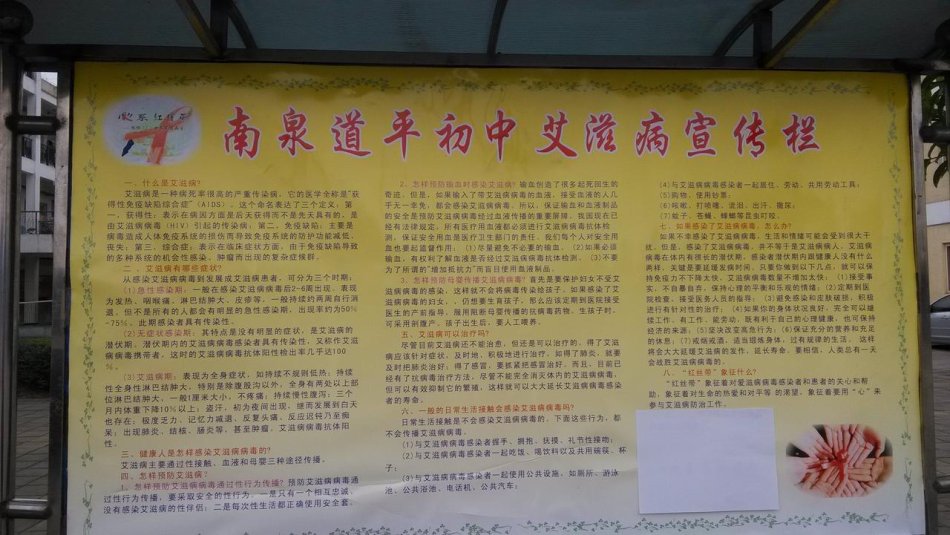 南泉道平初中艾滋病宣传栏
一、什么是艾滋病?
艾滋病是一种病死率很高的严重传染病,它的医学全称是"获
得性免疫缺陷综合症"(AIDS)。这个命名表达了三个定义:第
一,获得性:表示在病因方面是后天获得而不是先天具有的,是
由艾滋病病毒(HIV)引起的传染病;第二,免疫缺陷:主要是
病毒造成人体免疫系统的损伤而导致免疫系统的防护功能减低、
丧失;第三,综合症:表示在临床症状方面,由于免疫缺陷导致
的多种系统的机会性感染、肿瘤而出现的复杂症候群。
二、艾滋病有哪些症状?
从感染艾滋病病毒到发展成艾滋病患者,可分为三个时期:
(1)急性感染期:一般在感染艾滋病病毒后2-6周出现。表现
为发热、咽喉痛、淋巴结肿大、皮疹等。一般持续约两周自行消
退。但不是所有的人都会有明显的急性感染期,出现率约为50%
-75%。此期感染者具有传染性。
(2)无症状感染期:其特点是没有明显的症状,是艾滋病的
潜伏期。潜伏期内的艾滋病病毒感染者具有传染性,又称作艾滋
病病毒携带者,这时的艾滋病病毒抗体阳性检出率几乎达100
%。
(3)艾滋病期:表现为全身症状,如持续不规则低热;持续
性全身性淋巴结肿大,特别是除腹股沟以外,全身有两处以上部
位淋巴结肿大,一般1厘米大小,不疼痛;持续慢性腹泻;三个
月内体重下降10%以上;盗汗,初为夜间出现,继而发展到白天
也存在;极度乏力、记忆力减退、反复头痛、反应迟钝乃至痴
呆;出现肺炎、结核、肠炎等,甚至肿瘤。艾滋病病毒抗体阳
性。
三、健康人是怎样感染艾滋病病毒的?
艾滋病主要通过性接触、血液和母婴三种途径传播。
四、怎样预防艾滋病?
1.怎样预防艾滋病病毒通过性行为传播?预防艾滋病病毒通
过性行为传播,要采取安全的性行为。一是只有一个相互忠诚、
没有感染艾滋病的性伴侣;二是每次性生活都正确使用安全套。
2.怎样预防输血时感染艾滋病?输血创造了很多起死回生的
奇迹,但是,如果输入了带艾滋病病毒的血液,接受血液的人几
乎无一幸免,都会感染艾滋病病毒,所以,保证输血和血液制品
的安全是预防艾滋病病毒经过血液传播的重要屏障。我国现在已
经有法律规定,所有医疗用血液都必须进行艾滋病病毒抗体检
测,保证安全用血是医疗卫生部门的责任。我们每个人对安全用
血也要起监督作用。(1)尽量避免不必要的输血。(2)如果必须
输血,有权利了解血液是否经过艾滋病病毒抗体检测。(3)不要
为了所谓的"增加抵抗力"而盲目使用血液制品。
3.怎样预防母婴传播艾滋病病毒?首先是要保护妇女不受艾
滋病病毒的感染。这样就不会将病毒传染给孩子。如果感染了艾
滋病病毒的妇女,仍想要生育孩子,那么应该定期到医院接受
医生的产前指导,服用阻断母婴传播的抗病毒药物。生孩子时,
可采用剖腹产。孩子出生后,要人工喂养。
五、艾滋病可以治疗吗?
尽管目前艾滋病还不能治愈,但还是可以治疗的。得了艾滋
病应该针对症状,及时地、积极地进行治疗。如得了肺炎,就要
及时把肺炎治好;得了感冒,要抓紧把感冒治好。而且,目前已
经有了抗病毒治疗方法,尽管不能完全消灭体内的艾滋病病毒,
但可以有效抑制它的繁殖,这样就可以大大延长艾滋病病毒感染
者的寿命。
六、一般的日常生活接触会感染艾滋病病毒吗?
日常生活接触是不会感染艾滋病病毒的。下面这些行为,都
不会传播艾滋病病毒。
(1)与艾滋病病毒感染者握手、拥抱、抚摸、礼节性接吻;
(2)与艾滋病病毒感染者一起吃饭、喝饮料以及共用碗筷、杯
子;
(3)与艾滋病病毒感染者一起使用公共设施,如厕所、游泳
池、公共浴池、电话机、公共汽车;
(4)与艾滋病病毒感染者一起居住、劳动、共用劳动工具;
(5)购物、使用钞票;
(6)咳嗽、打喷嚏、流泪、出汗、撒尿;
(7)蚊子、苍蝇、蟑螂等昆虫叮咬。
七、如果感染了艾滋病病毒,怎么办?
如果不幸感染了艾滋病病毒,生活和情绪可能会受到很大干
扰。但是,感染了艾滋病病毒,并不等于是艾滋病病人。艾滋病病
毒在体内有很长的潜伏期,感染者潜伏期内跟健康人没有什么
两样,关键是要延缓发病时间。只要你做到以下几点,就可以保
持免疫力不下降太快、艾滋病病毒数量不增加太快:(1)接受事
实,不自暴自弃,保持心理的平衡和乐观的情绪;(2)定期到医
院检查,接受医务人员的指导;(3)避免感染和皮肤破损,积极
进行有针对性的治疗;(4)如果你的身体状况良好,完全可以继
续工作。有工作,能劳动,既有利于自己的心理健康,也可保持
经济的来源;(5)坚决改变高危行为;(6)保证充分的营养和充足
的休息;(7)戒烟戒酒,适当锻炼身体,过有规律的生活。这样
将会大大延缓艾滋病的发作,延长寿命。要相信,人类总有一天
会战胜艾滋病病毒。
八、"红丝带"象征什么?
"红丝带"象征着对爱滋病病毒感染者和患者的关心和帮
助,象征着对生命的热爱和对平等的渴望,象征着要用"心"来
参与艾滋病防治工作。